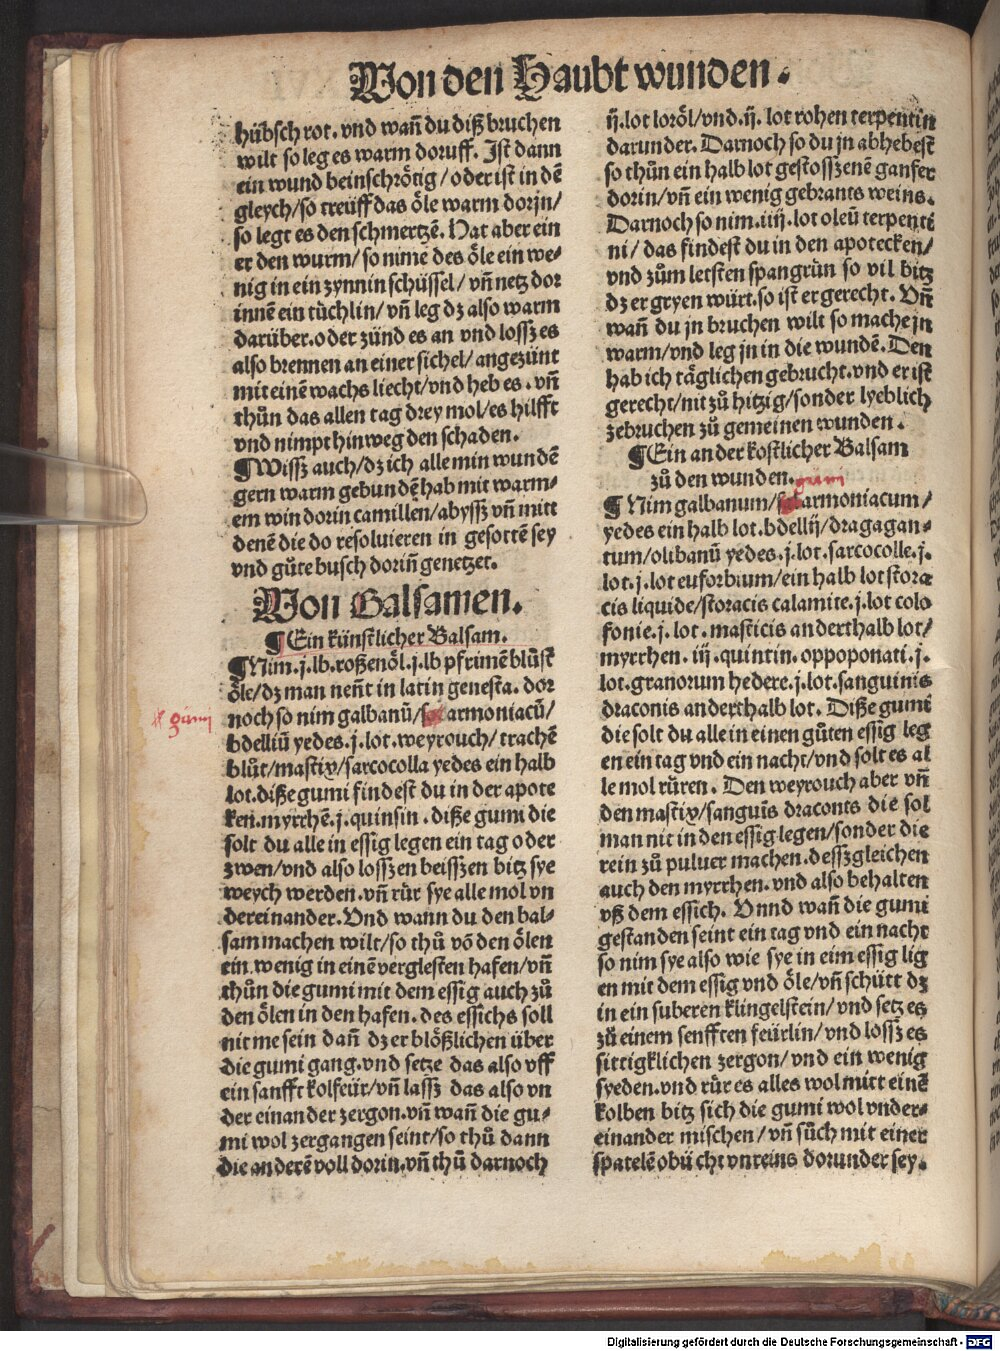 Von den Haubt wunden.
hübsch rot. vnd wañ du diß bruchen
wilt so leg es warm doruff. Ist dann
ein wund beinschrötig / oder ist in dē
gleych/so treüff das öle warm dorjn/
so legt es den schmertzē. Hat aber ein
er den wurm/ so nime des öle ein we⸗
nig in ein zynnin schüssel/ vñ netz dor
innē ein tüchlin/ vñ leg dz also warm
darüber.oder zünd es an vnd lossz es
also brennen an einer sichel/ angezünt
mit einē wachs liecht/vnd heb es. vñ
thůn das allen tag drey mol/es hilfft
vnd nimpt hinweg den schaden.
¶Wissz auch/dz ich alle min wundē
gern warm gebundē hab mit warm⸗
em win dorin camillen/abyssz vñ mitt
denē die do resoluieren in gesottē sey
vnd gůte busch doriñ genetzet.
Von Balsamen.
¶Ein künstlicher Balsam.
¶Nim.j.lb.roßenöl.j.lb pfrimē blůst
öle/dz man neñt in latin genesta. dor
noch so nim galbanū/ armoniacū/
gūmi
bdelliū yedes.j.lot.weyrouch/ trachē
blůt/mastix/sarcocolla yedes ein halb
lot.diße gumi findest du in der apote
ken.myrrhē.j.quinsin.diße gumi die
solt du alle in essig legen ein tag oder
zwen/vnd also losszen beisszen bitz sye
weych werden.vñ rür sye alle mol vn
dereinander.Vnd wann du den bal⸗
sam machen wilt/so thů vō den ölen
ein wenig in einē verglesten hafen/vñ
thůn die gumi mit dem essig auch zů
den ölen in den hafen.des essichs soll
nit me sein dañ dz er blößlichen über
die gumi gang.vnd setze das also vff
ein sanfft kolfeür/vñ lassz das also vn
der einander zergon.vñ wañ die gu⸗
mi wol zergangen seint/so thů dann
die anderē voll dorin.vñ thů darnoch
ij.lot loröl/vnd.ij.lot rohen terpentin
darunder. Darnoch so du jn abhebest
so thůn ein halb lot gestosszenē ganfer
dorin/vñ ein wenig gebrants weins.
Darnoch so nim.iiij.lot oleū terpenti
ni/ das findest du in den apotecken/
vnd zům letsten spangrün so vil bitz
dz er gryen würt.so ist er gerecht. Vñ
wañ du jn bruchen wilt so mache jn
warm/vnd leg jn in die wundē. Den
hab ich täglichen gebrucht.vnd er ist
gerecht/nit zů hitzig/sonder lyeblich
zebruchen zů gemeinen wunden.
¶Ein ander kostlicher Balsam
zů den wunden.
gūmi
¶Nim galbanum/ armoniacum/
yedes ein halb lot.bdellij/dragagan⸗
tum/olibanū yedes.j.lot.sarcocolle.j.
lot.j.lot euforbium/ein halb lot stora
cis liquide/storacis calamite.j.lot colo
fonie.j.lot.masticis anderthalb lot/
myrrhen.iij.quintin.oppoponati.j.
lot.granorum hedere.j.lot.sanguinis
draconis anderthalb lot. Diße gumi
die solt du alle in einen gůten essig leg
en ein tag vnd ein nacht/vnd solt es al
le mol rüren. Den weyrouch aber vñ
den mastix/sanguīs draconis die sol
man nit in den essig legen/sonder die
rein zů puluer machen.dessz gleichen
auch den myrrhen.vnd also behalten
vß dem essich. Vnnd wañ die gumi
gestanden seint ein tag vnd ein nacht
so nim sye also wie sye in eim essig lig
en mit dem essig vnd öle/vñ schütt dz
in ein suberen klingelstein/vnd setz es
zů einem senfften feürlin/vnd lossz es
sittigklichen zergon/vnd ein wenig
syeden.vnd rür es alles wol mitt einē
kolben bitz sich die gumi wol vnder⸗
einander mischen/vñ sůch mit einer
spatelē ob ü cht vnreins dorunder sey.
Digitalisierung gefördert durch die Deutsche Forschungsgemeinschaft - DFG